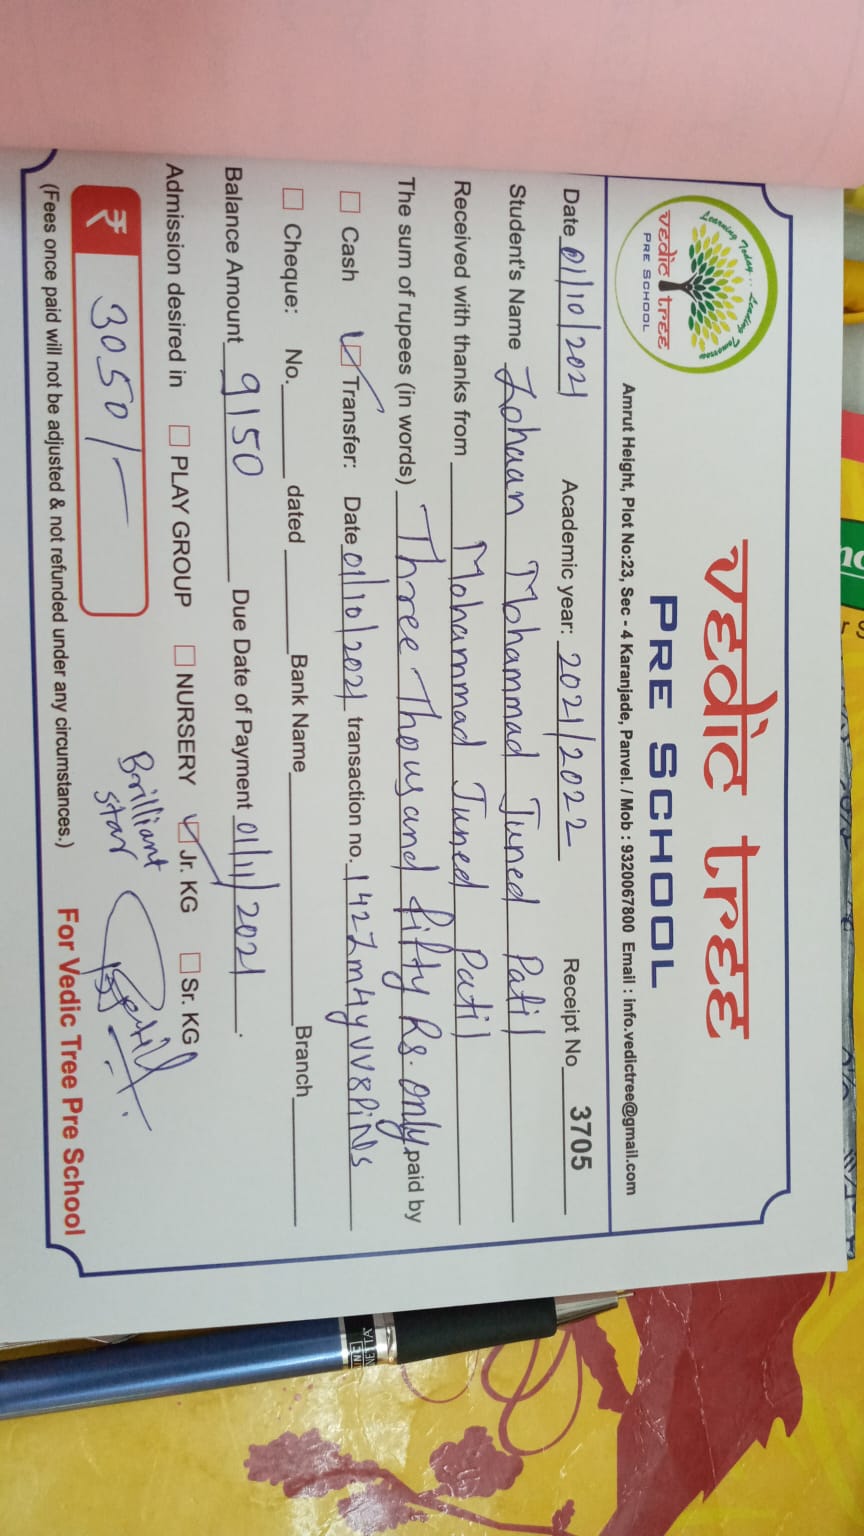 Learning Today... Leading Tomorrow
vedic tree
PRE SCHOOL
vedic tree
PRE SCHOOL
Amrut Height, Plot No:23, Sec - 4 Karanjade, Panvel. / Mob : 9320067800 Email : info.vedictree@gmail.com
Date 01/10/2021 Academic year: 2021/2022 Receipt No 3705
Student's Name Zohaan Mohammad Juned Patil
Received with thanks from Mohammad Juned Patil
The sum of rupees (in words) Three Thousand fifty Rs. only paid by
Cash Transfer: Date 01/10/2021 transaction no.
Cheque: No. dated Bank Name Branch
Balance Amount 9150 Due Date of Payment 01/11/2021.
Admission desired in PLAY GROUP NURSERY Jr. KG Sr. KG
₹ 3050/-
Brilliant
star
(Fees once paid will not be adjusted & not refunded under any circumstances.) For Vedic Tree Pre School